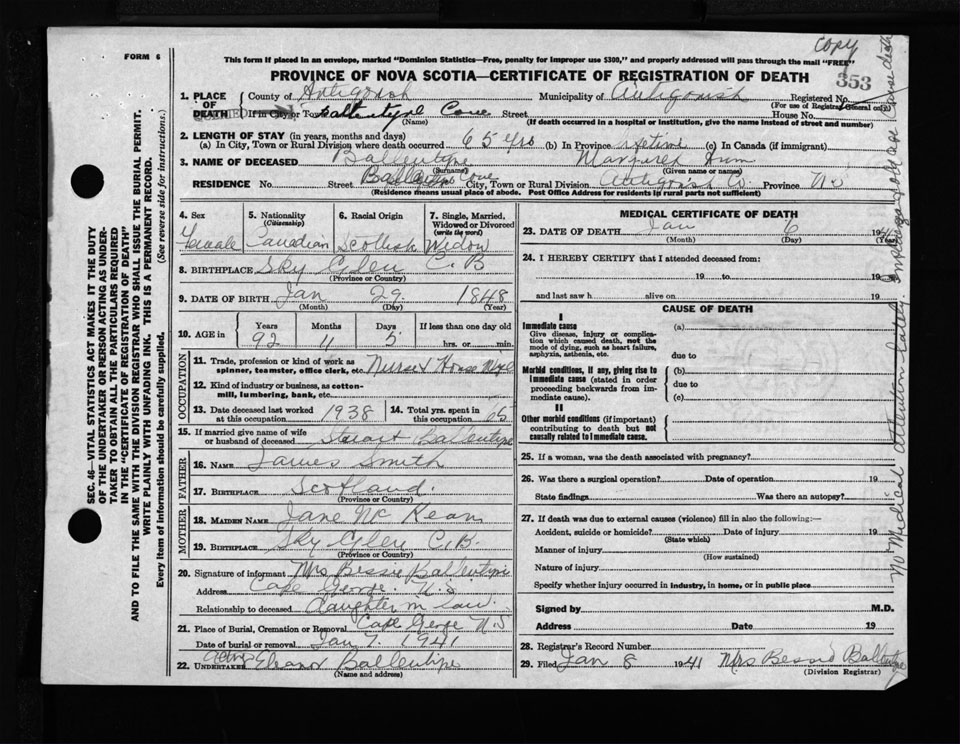 copy
FORM 6
This form if placed in an envelope, marked "Dominion Statistics—Free, penalty for improper use $300," and properly addressed will pass through the mail "FREE"
PROVINCE OF NOVA SCOTIA—CERTIFICATE OF REGISTRATION OF DEATH
353
1. PLACE OF DEATH County of Antigonish Municipality of Antigonish Registered No.
(For use of Registrar General only)
If in City or Town Ballentyne Cove Street House No.
(Name) (If death occurred in a hospital or institution, give the name instead of street and number)
2. LENGTH OF STAY (in years, months and days)
(a) In City, Town or Rural Division where death occurred 65 yrs (b) In Province lifetime (c) In Canada (if immigrant)
3. NAME OF DECEASED Ballentyne Margaret Ann
(Surname) (Given name or names)
RESIDENCE No. Street Ballentyne Cove City, Town or Rural Division Antigonish Co Province NS
(Residence means usual place of abode. Post Office Address for residents in rural parts not sufficient)
4. Sex 5. Nationality (Citizenship) 6. Racial Origin 7. Single, Married, Widowed or Divorced (write the word)
Female Canadian Scottish Widow
8. BIRTHPLACE Sky Glen C. B
(Province or Country)
9. DATE OF BIRTH Jan 29 1848
(Month) (Day) (Year)
10. AGE in Years Months Days If less than one day old
92 11 5 hrs. or min.
OCCUPATION
11. Trade, profession or kind of work as spinner, teamster, office clerk, etc. Nurse & House Wife
12. Kind of industry or business, as cotton-mill, lumbering, bank, etc.
13. Date deceased last worked at this occupation 1938 14. Total yrs. spent in this occupation 65
15. If married give name of wife or husband of deceased Stuart Ballentyne
FATHER
16. NAME James Smith
17. BIRTHPLACE Scotland.
(Province or Country)
MOTHER
18. MAIDEN NAME Jane Mc Kean
19. BIRTHPLACE Sky Glen C. B.
(Province or Country)
20. Signature of informant Mrs Bessie Ballentyne
Address Cape George N.S
Relationship to deceased daughter in law.
21. Place of Burial, Cremation or Removal Cape George N.S
Date of burial or removal Jan 7 1941
22. UNDERTAKER Acting Eleanor Ballentyne
(Name and address)
MEDICAL CERTIFICATE OF DEATH
23. DATE OF DEATH Jan 6 1941
(Month) (Day) (Year)
24. I HEREBY CERTIFY that I attended deceased from
19 to 19
and last saw h alive on 19
CAUSE OF DEATH
I
Immediate cause
Give disease, injury or complication which caused death, not the mode of dying, such as heart failure, asphyxia, asthenia, etc.
(a)
due to
Morbid conditions, if any, giving rise to immediate cause (stated in order proceeding backwards from immediate cause).
(b)
due to
(c)
II
Other morbid conditions (if important) contributing to death but not causally related to immediate cause.
25. If a woman, was the death associated with pregnancy?
26. Was there a surgical operation? Date of operation 19
State findings Was there an autopsy?
27. If death was due to external causes (violence) fill in also the following:—
Accident, suicide or homicide? Date of injury 19
(State which)
Manner of injury
(How sustained)
Nature of injury
Specify whether injury occurred in industry, in home, or in public place
Signed by M.D.
Address Date 19
28. Registrar's Record Number
29. Filed Jan 8 1941 Mrs Bessie Ballentyne
(Division Registrar)
No Medical Attention lately. old age
SEC. 46—VITAL STATISTICS ACT MAKES IT THE DUTY
OF THE UNDERTAKER OR PERSON ACTING AS UNDER-
TAKER TO OBTAIN ALL THE PARTICULARS REQUIRED
IN THE "CERTIFICATE OF REGISTRATION OF DEATH"
AND TO FILE THE SAME WITH THE DIVISION REGISTRAR WHO SHALL ISSUE THE BURIAL PERMIT.
WRITE PLAINLY WITH UNFADING INK. THIS IS A PERMANENT RECORD.
Every item of information should be carefully supplied. (See reverse side for instructions.)